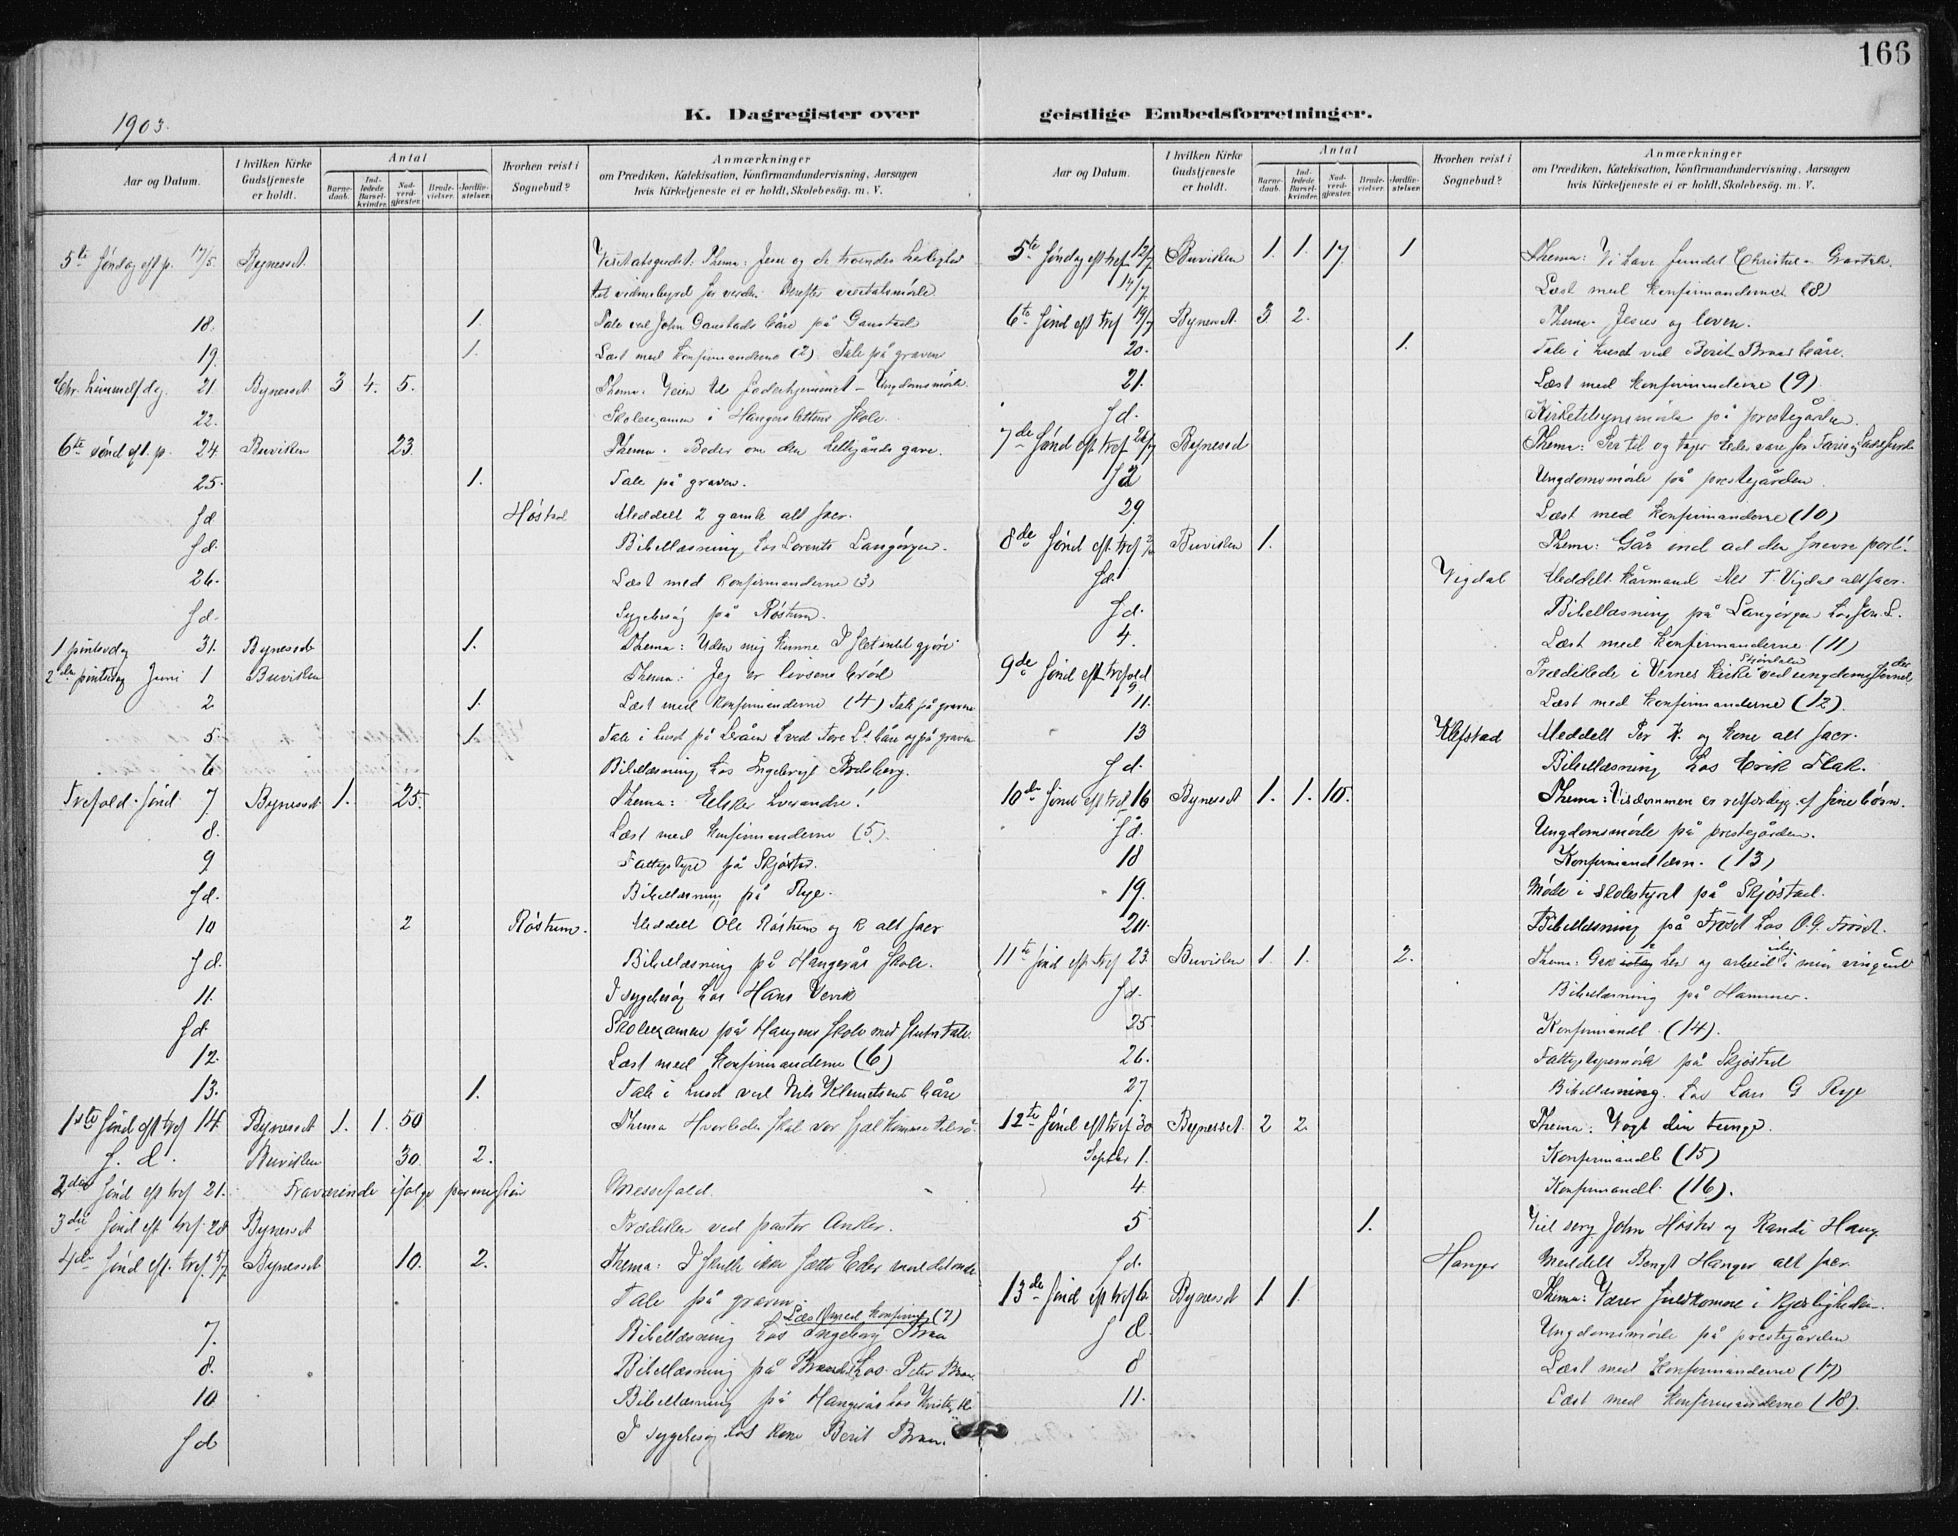 166
1903.
K. Dagregister over geistlige Embedsforretninger.
Aar og Datum.
I hvilken Kirke Gudstjeneste er holdt.
Antal
Barnedaab.
Indledede Barselkvinder.
Nadverdgjæster.
Brudevielser.
Jordfæstelser.
Hvorhen reist i Sognebud?
Anmærkninger
om Prædiken, Katekisation, Konfirmandundervisning, Aarsagen
hvis Kirketjeneste ei er holdt, Skolebesøg. m. V.
5te søndag eft p. 17/5. Bynesset. Visitatsgudst. Thema: Jesu og de troendes
til vidnesbyrd for verden. Derefter visitatsmøde
18. 1. Tale ved John Ganstads båre på Ganstad
19. 1. Læst med konfirmanderne (2) Tale på graven
Chr. himmelf.dag. 21. Bynesset 3 4. 5. Thema: Veien til faderhjemmet - Ungdomsmøde
22. Skoleexamen i skole.
6te sønd eft. p. 24 Buviken 23. Thema. Beder om den helligånds gave.
25. 1. Tale på graven.
s d. Høstad Meddelt 2 gamle alt sacr.
s d. Bibellæsning hos Lorents Langørgen.
26. Læst med konfirmanderne (3)
s d. Sygebesøg på Røstum.
1 pintsedag 31. Bynesset 1. Thema: Uden mig kunne I slet intet gjøre
2den pintsedag Juni 1 Buviken Thema: Jeg er livsens brød
2 1. Læst med konfirmanderne (4) Tale på graven
5. 1. Tale i huset på ved Tore båre og på graven
6. Bibellæsning hos
Trefold. sønd 7. Bynesset 1. 25. Thema: Elsker hverandre!
8. Læst med konfirmanderne (5)
9 på Skjøstad.
s d. Bibellæsning på Rye.
10 2 Røstum. Meddelt Ole Røstum og k alt sacr
s d. Bibellæsning på Hangerås skole.
11. I sygebesøg hos Hans
s d. Skoleexamen på Hangerås skole med
12. Læst med konfirmanderne (6)
13. 1. Tale i huset ved Nils Klemetsens båre
1ste sønd eft tref 14. Bynesset 1. 1. 50 Thema Hvorledes skal vor
s. d. Buviken 30. 2.
2den sønd eft tref 21. Fraværende ifølge permission Messefald.
3die sønd eft tref. 28 Bynesset Prædiken ved pastor Anker.
4de sønd eft. tref. 5/7. Bynesset 10. 2. Thema: I skulle ikke sætte Eder
Tale på graven.
7. Læst med konfirm. (7)
Bibellæsning hos Ingeborg Braa
8. Bibellæsning på hos Peter Braa.
10 Bibellæsning på Hangerås hos
s d I sygebesøg hos kone Berit Braa.
Aar og Datum.
I hvilken Kirke Gudstjeneste er holdt.
Antal
Barnedaab.
Indledede Barselkvinder.
Nadverdgjæster.
Brudevielser.
Jordfæstelser.
Hvorhen reist i Sognebud?
Anmærkninger
om Prædiken, Katekisation, Konfirmandundervisning, Aarsagen
hvis Kirketjeneste ei er holdt, Skolebesøg. m. V.
5te søndag eft tref 12/7. Buviken 1. 1. 17. 1 Thema: Vi have fundet Christus -
14/7 Læst med konfirmanderne (8)
6te sønd eft tref 19/7 Bynesset 3 2. Thema. Jesus og loven.
20. 1. Tale i huset ved Berit Braas båre.
21. Læst med konfirmanderne (9)
s d. Kirketilsynsmøde på prestegården
7de sønd eft tref 26/7 Bynesset Thema: Ser til og tager Eder vare for
s d Ungdomsmøde på prestegården
29 Læst med konfirmanderne (10)
8de sønd eft. tref Buviken 1. Thema: Går ind ad den snevre port!
s d. Vigdal Meddelt kårmand Nils T. Vigdal alt sacr.
s d. Bibellæsning på Langørgen hos
4. Læst med konfirmanderne (11)
9de sønd eft trefold 9 Prædikede i Vernes kirke Stjørdalen ved ungdoms
11. Læst med konfirmanderne (12)
13 Klefstad Meddelt Per K. og kone alt sacr.
s d. Bibellæsning hos Erik Flak.
10de sønd eft tref 16 Bynesset 1. 1. 10. Thema: Visdommen er retferdiggj. af sine børn.
s d. Ungdomsmøde på prestegården.
18 Konfirmandlæsn. (13)
19. Møde i skolestyret på Skjøstad.
20. Bibellæsning på Frøset hos O. G. Frøset.
11te sønd eft tref 23. Buviken 1 1. 2. Thema: Gak hen og arbeid idag i min vingård
s d. Bibellæsning på Hammer.
25 Konfirmandl. (14).
26. på Skjøstad
27 Bibellæsning. hos Lars G Rye
12te sønd eft tref 30 Bynesset. 2 2. Thema: Vogt din tunge.
Septbr 1. Konfirmandl (15)
4. Konfirmandl. (16).
5 1. Viel serg. John Høstad og Randi Haug
s d. Hanger Meddelt Bengt Hanger alt sacr.
13de sønd eft tref 6. Bynesset 1 1. Thema: Værer fuldkomne i kjærligheden.
s d. Ungdomsmøde på prestegården
8 Læst med konfirmanderne (17)
11. Læst med konfirmanderne (18).